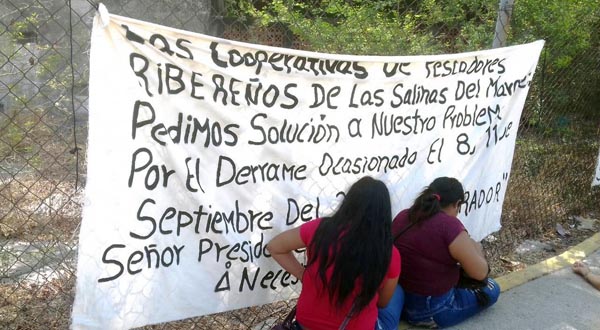 Las Cooperativas De Pescadores
RIBEREÑOS De Las Salinas Del
Pedimos Solución a Nuestro Problem
Por El Derrame Ocasionado El 8, 11
Septiembre Del 2 RADOR"
Señor Preside
Neces